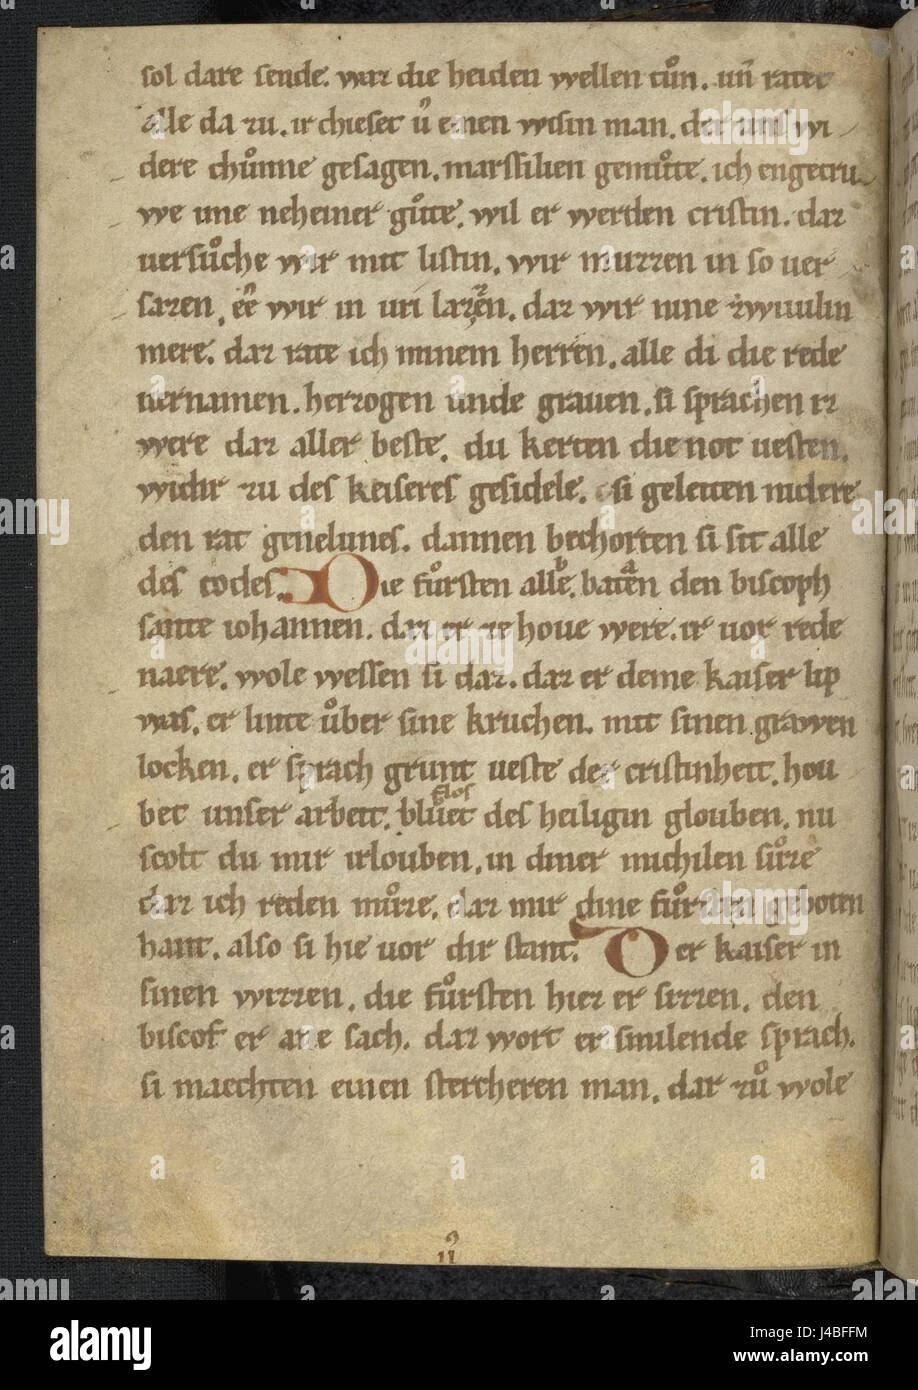 sol dare sende. waz die heiden wellen tuͦn. uñ ratet
alle da zu. ir chieset ű einen wisin man. der unſ wi
dere chuͦnne geſagen. marſſilien gemuͦte. ich engetru
we ime neheiner guͦte. wil er werden criſtin. daz
uerſuͦche wir mit liſtin. wir muzzen in ſo uer
ſazen. ee wir in uri lazen. daz wir nine zwiuilin
mere. daz rate ich minem herren. alle di die rede
uernamen. herzogen unde grauen. ſi ſprachen iz
were daz aller beſte. du kerten die not ueſten.
widir zu deſ keiſereſ geſidele. ſi geleiten nidere
den rat geneluneſ. dannen bechorten ſi ſit alle
deſ todeſ. Die fuͦrſten alle. baten den biſcoph
ſante iohannen. daz er ze houe were. ir uor rede
naere. wole weſſen ſi daz. daz er deme kaiſer lip
was. er linte uͦber ſine kruchen. mit ſinen grawen
locken. er ſprach grunt ueſte der criſtinheit. hou
bet unſer arbeit. bluͤet des heiligin glouben. nu
ſcolt du mir irlouben. in diner michilen ſuͦze
daz ich reden muͦze. daz mir dine fuͦrſten geboten
hant. alſo ſi hie uor dir ſtant. Der kaiſer in
ſinen wizzen. die fuͦrſten hiez er ſizzen. den
biſcof er ane ſach. daz wort er ſmilende ſprach.
ſi maechten einen ſtercheren man. dar zuͦ wole
alamy
Image ID: J4BFFM
www.alamy.com